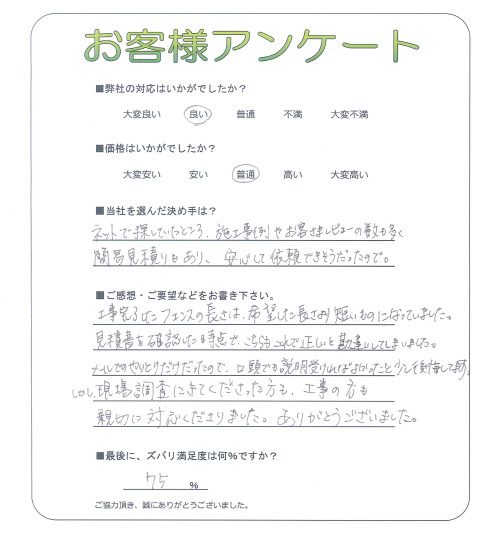 お客様アンケート
■弊社の対応はいかがでしたか？
大変良い 良い 普通 不満 大変不満
■価格はいかがでしたか？
大変安い 安い 普通 高い 大変高い
■当社を選んだ決め手は？
ネットで探していたところ、施工事例やお客さまレビューの数も多く
簡易見積りもあり、安心して依頼できそうだったので。
■ご感想・ご要望などをお書き下さい。
工事完了したフェンスの長さは、希望した長さより短いものになっていました。
見積書を確認した時点で、こちらもこれで正しいと勘違いしてしまいました。
メールでのやりとりだけだったので、口頭でも説明受ければよかったと少し後悔してます。
しかし、現場調査にきてくださった方も、工事の方も
親切に対応くださりました。ありがとうございました。
■最後に、ズバリ満足度は何％ですか？
75 ％
ご協力頂き、誠にありがとうございました。